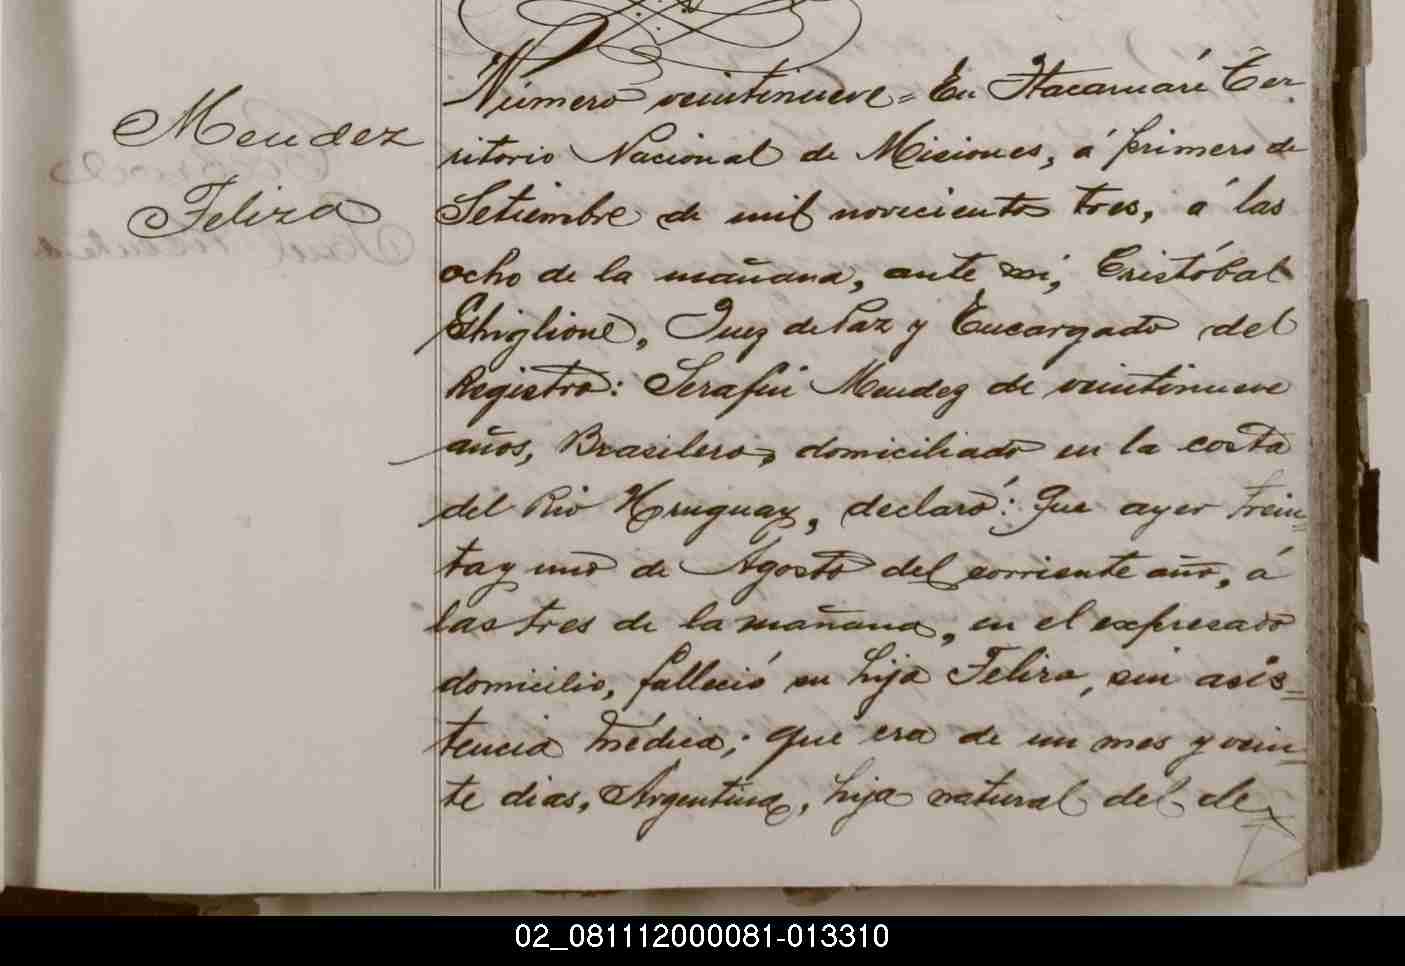 Mendez
Feliza
Número veintinueve = En Itacaruaré Ter-
ritorio Nacional de Misiones, á primero de
Setiembre de mil novecientos tres, á las
ocho de la mañana, ante mí, Cristóbal
Ghiglione, Juez de Paz y Encargado del
Registro: Serafin Mendez de veintinueve
años, Brasilero, domiciliado en la costa
del Rio Uruguay, declaró: Que ayer trein-
ta y uno de Agosto del corriente año, á
las tres de la mañana, en el expresado
domicilio, falleció su hija Feliza, sin asis-
tencia médica; que era de un mes y vein-
te dias, Argentina, hija natural del de-
02_081112000081-013310